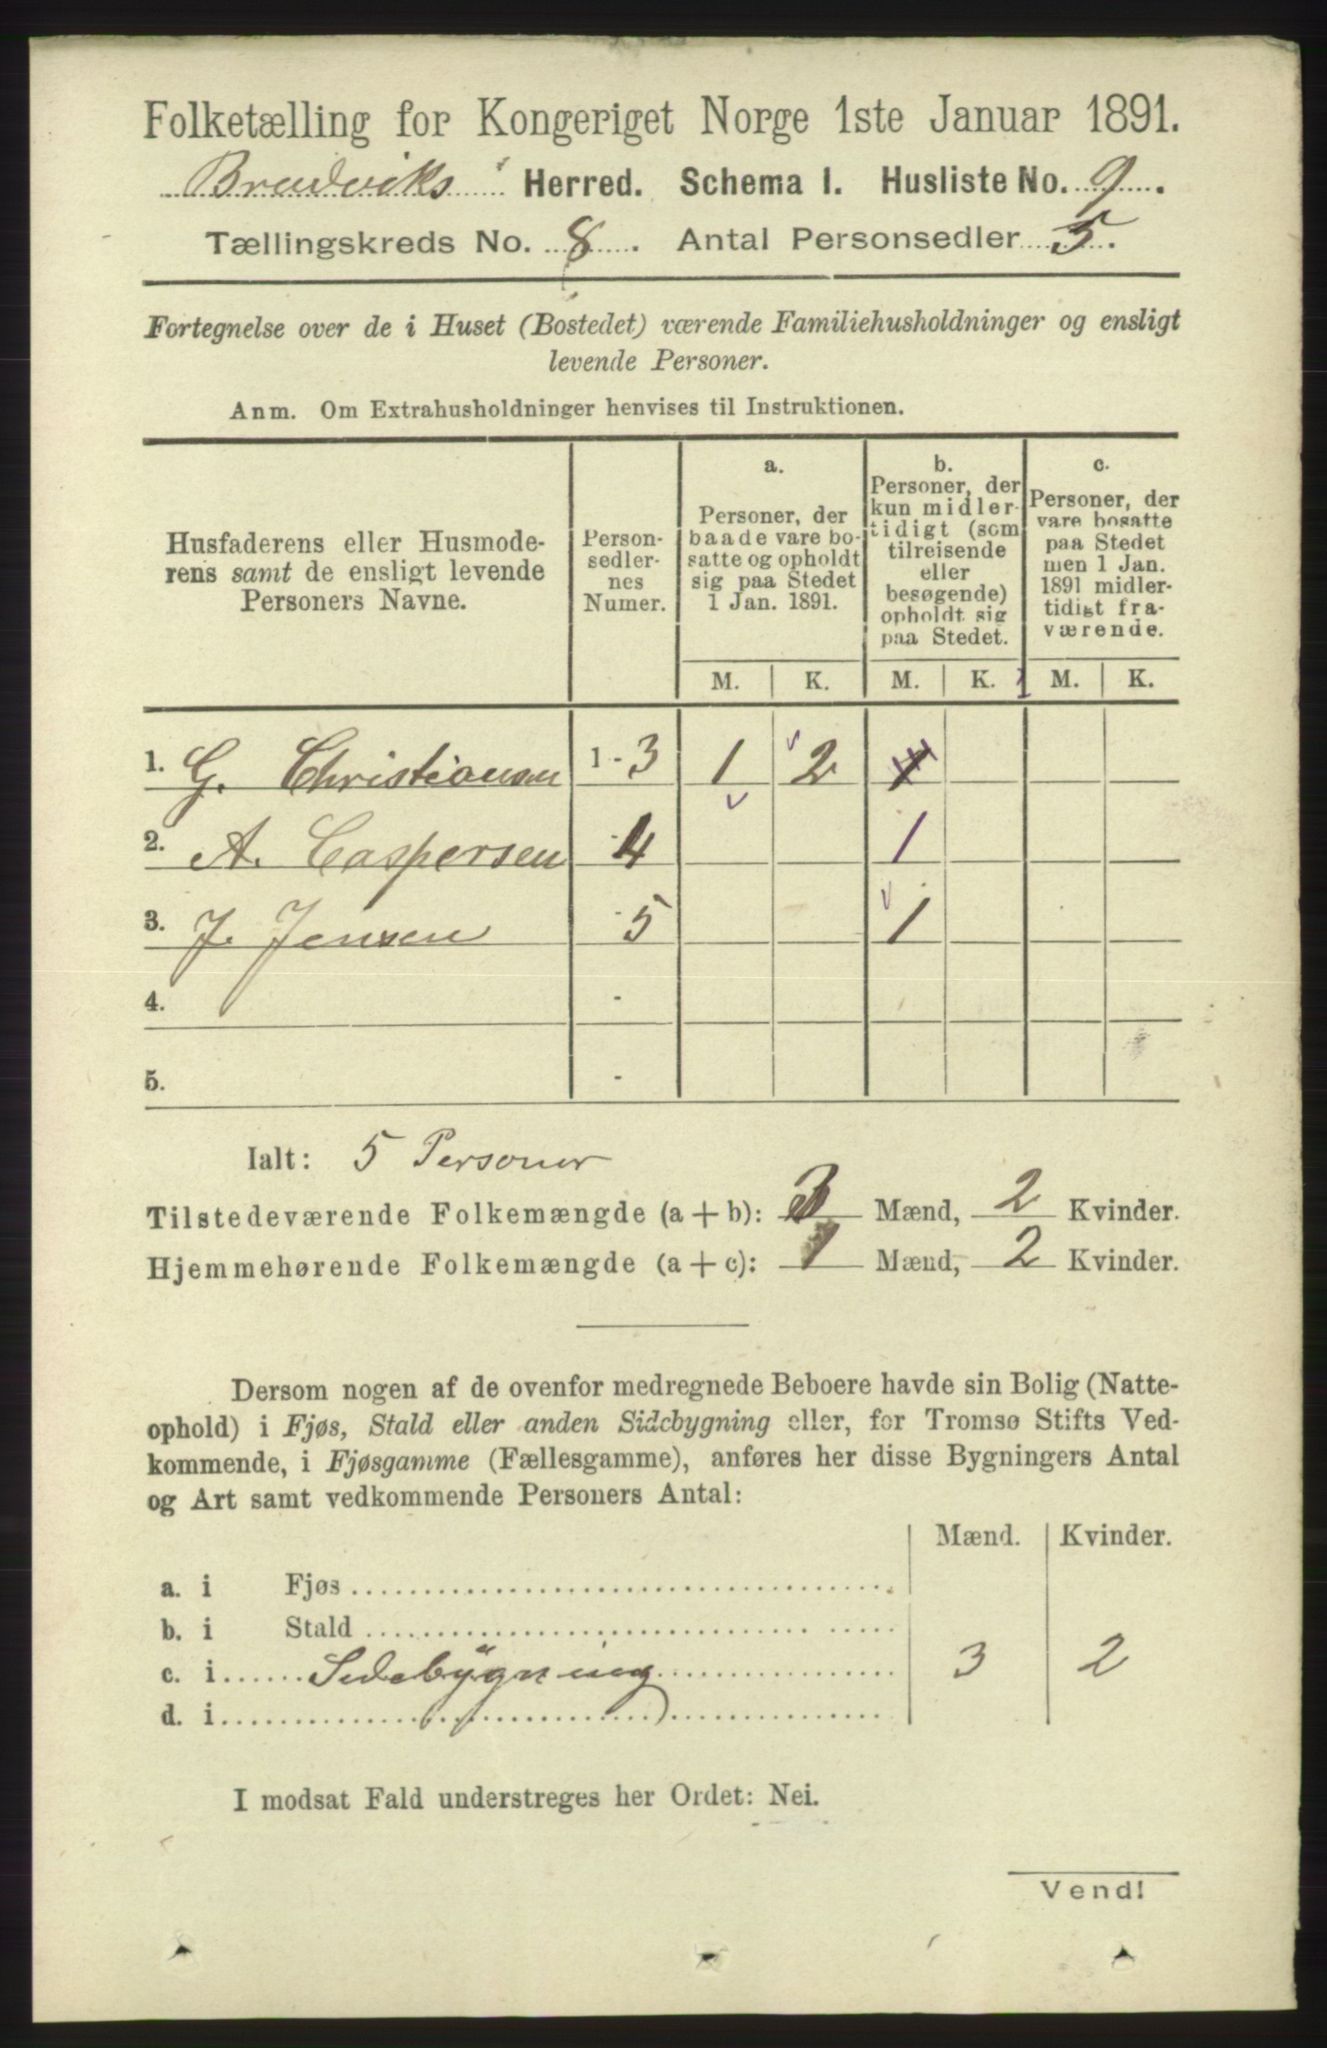 Folketælling for Kongeriget Norge 1ste Januar 1891.
Brudviks Herred. Schema I. Husliste No. 9.
Tællingskreds No. 8. Antal Personsedler 5.
Fortegnelse over de i Huset (Bostedet) værende Familiehusholdninger og ensligt
levende Personer.
Anm. Om Extrahusholdninger henvises til Instruktionen.
Husfaderens eller Husmode-
rens samt de ensligt levende
Personers Navne.
Person-
sedler-
nes
Numer.
a.
Personer, der
baade vare bo-
satte og opholdt
sig paa Stedet
1 Jan. 1891.
b.
Personer, der
kun midler-
tidigt (som
tilreisende
eller
besøgende)
opholdt sig
paa Stedet.
c.
Personer, der
vare bosatte
paa Stedet
men 1 Jan.
1891 midler-
tidigt fra-
værende.
M. K. M. K. M. K.
1. G. Christiansen 1 - 3 1 2
2. A. Caspersen - 4 1
3. J. Jensen - 5 1
4. -
5. -
Ialt: 5 Personer
Tilstedeværende Folkemængde (a + b): 3 Mænd, 2 Kvinder.
Hjemmehørende Folkemængde (a + c): 1 Mænd, 2 Kvinder.
Dersom nogen af de ovenfor medregnede Beboere havde sin Bolig (Natte-
ophold) i Fjøs, Stald eller anden Sidebygning eller, for Tromsø Stifts Ved-
kommende, i Fjøsgamme (Fællesgamme), anføres her disse Bygningers Antal
og Art samt vedkommende Personers Antal:
Mænd. Kvinder.
a. i Fjøs
b. i Stald
c. i Sidebygning 3 2
d. i
I modsat Fald understreges her Ordet: Nei.
Vend!